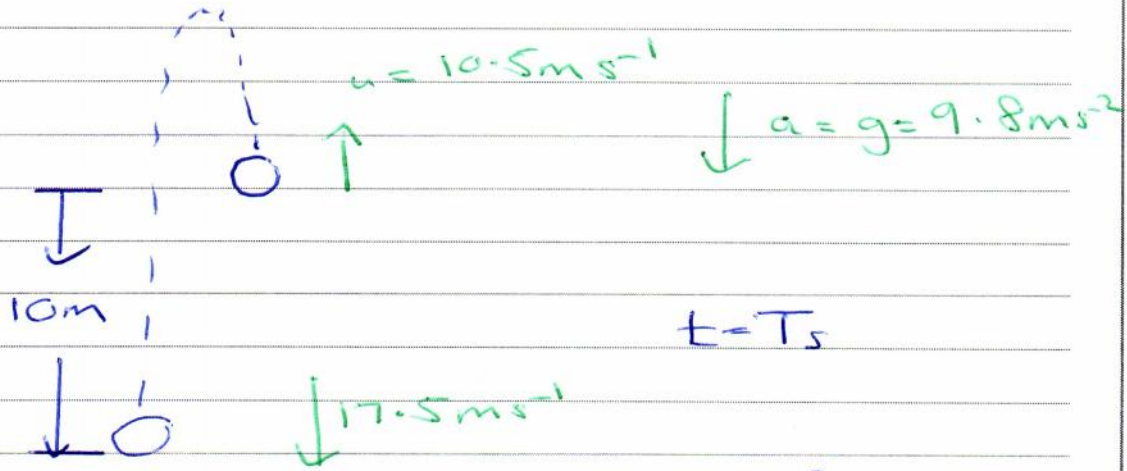 u = 10.5ms⁻¹
a = g = 9.8ms⁻²
10m
t = Ts
17.5ms⁻¹